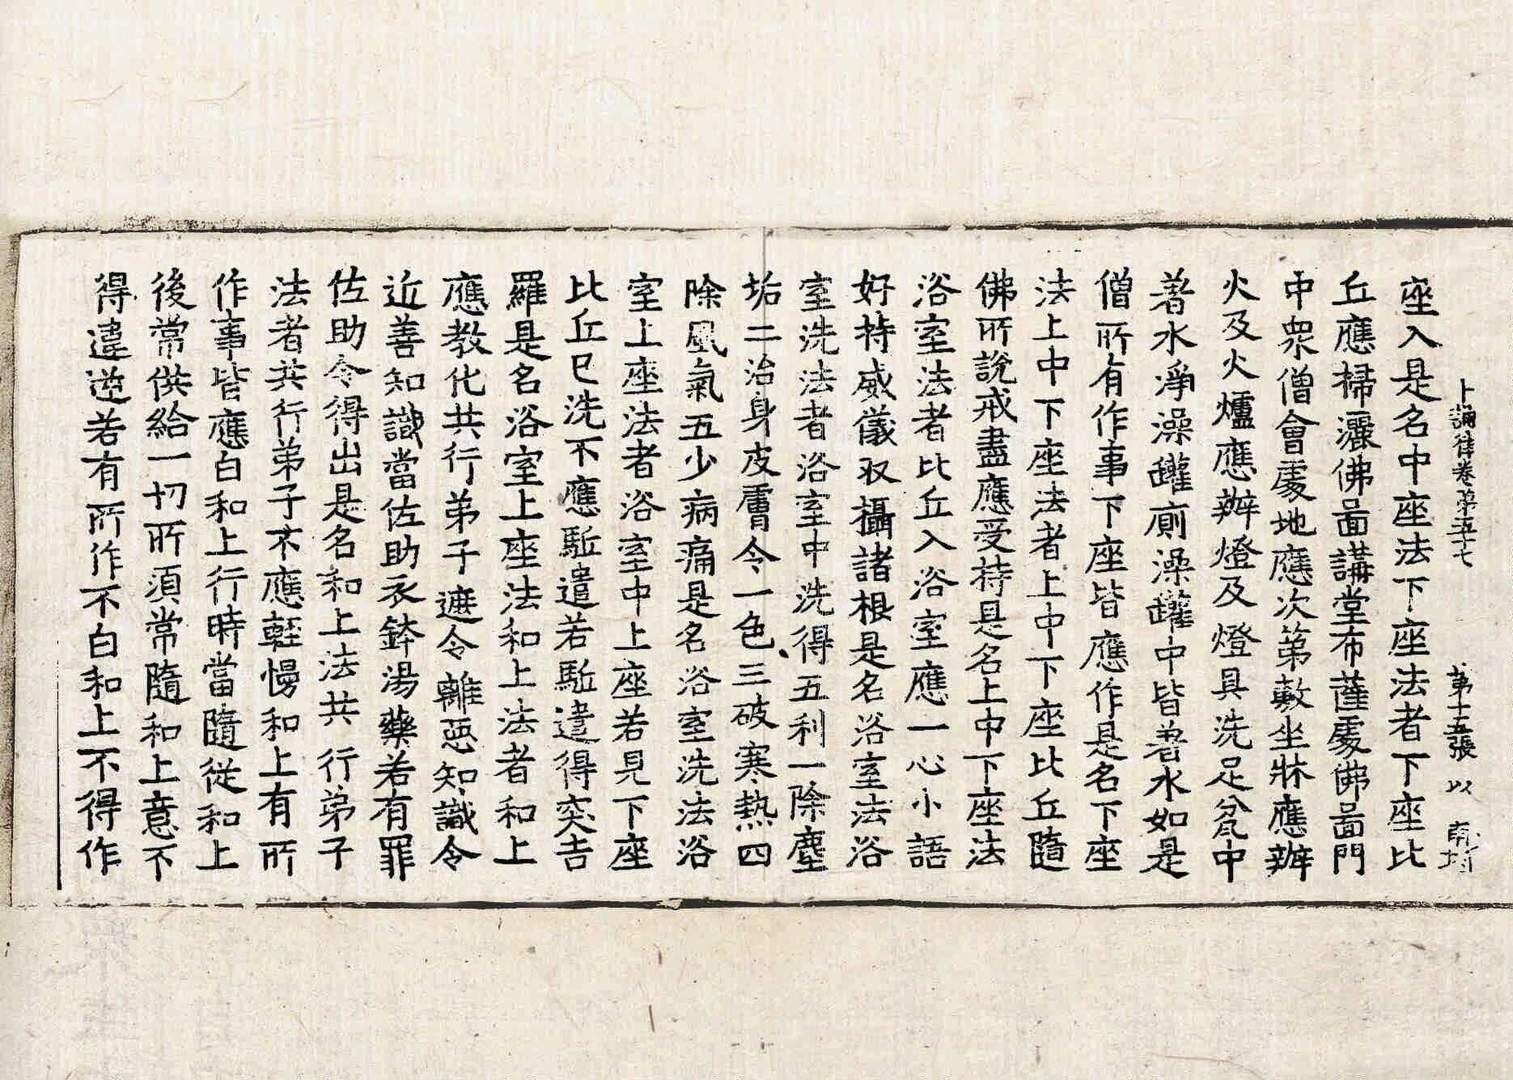 十誦律卷第五十七 第十五張 以
座入是名中座法下座法者下座比
丘應掃灑佛啚講堂布薩處佛啚門
中眾僧會處地應次第敷坐牀應辦
火及火爐應辦燈及燈具洗足瓫中
著水淨澡罐廁澡罐中皆著水如是
僧所有作事下座皆應作是名下座
法上中下座法者上中下座比丘隨
佛所說戒盡應受持是名上中下座法
浴室法者比丘入浴室應一心小語
好持威儀収攝諸根是名浴室法浴
室洗法者浴室中洗得五利一除塵
垢二治身皮膚令一色三破寒熱四
除風氣五少病痛是名浴室洗法浴
室上座法者浴室中上座若見下座
比丘已洗不應駈遣若駈遣得突吉
羅是名浴室上座法和上法者和上
應教化共行弟子遮令離惡知識令
近善知識當佐助衣鉢湯藥若有罪
佐助令得出是名和上法共行弟子
法者共行弟子不應輕慢和上有所
作事皆應白和上行時當隨從和上
後常供給一切所須常隨和上意不
得違逆若有所作不白和上不得作